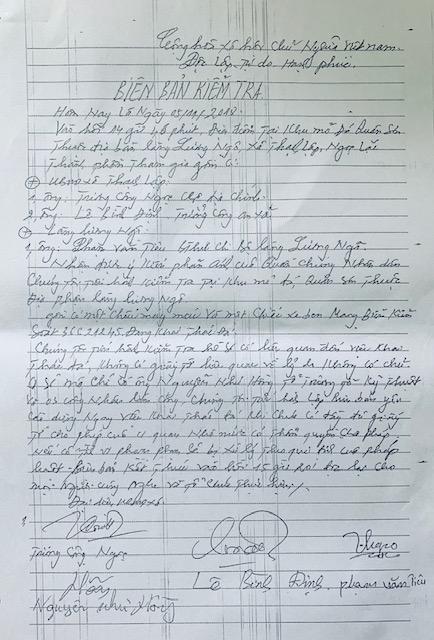 Cộng hòa xã hội Chủ Nghĩa Việt nam
Độc Lập Tự do Hạnh phúc.
BIÊN BẢN KIỂM TRA
Hôm Nay Là Ngày 05/11/2018.
Vào hồi 14 giờ 40 phút, Địa điểm Tại Khu mỏ Đá
Thuộc địa bàn làng Lương Ngô, xã Thạch Lập, Ngọc Lặc
Thành phần Tham gia gồm có:
UBND xã Thạch Lập:
1, ông: Trương Công Ngọc Cbộ Địa Chính.
2, ông: Lê Bình Định, Trưởng Công An xã.
Làng Lương Ngô:
1, ông: Phạm Văn Tiêu Chi Bộ làng Lương Ngô.
Nhận được ý kiến phản ánh của Quần Chúng Nhân dân
Chúng tôi tiến hành Kiểm Tra Tại Khu mỏ đá Thuộc
Địa phận làng Lương Ngô.
một Chiếc xe ben Mang Biển Kiểm
Soát Đang Khai Thác Đá.
Chúng tôi tiến hành Kiểm Tra hồ sơ có liên quan đến việc Khai
Thác đá, không có giấy tờ liên quan lý do Không có chủ
ông Nguyễn Như Hồng Kỹ Thuật
và 02 công Nhân làm công. Chúng tôi lập biên bản yêu
cầu dừng Ngay việc Khai Thác đá khi chưa có đầy đủ giấy
tờ cho phép của cơ quan Nhà nước có Thẩm quyền cho phép
Nếu cố vi phạm sẽ bị xử lý Theo quy định của pháp
luật. Biên bản Kết Thúc vào hồi 15 giờ đọc lại cho
mọi Người cùng Nghe
Đại diện UBND xã.
Trương Công Ngọc
Lê Bình Định. phạm văn Tiêu
Nguyễn Như Hồng